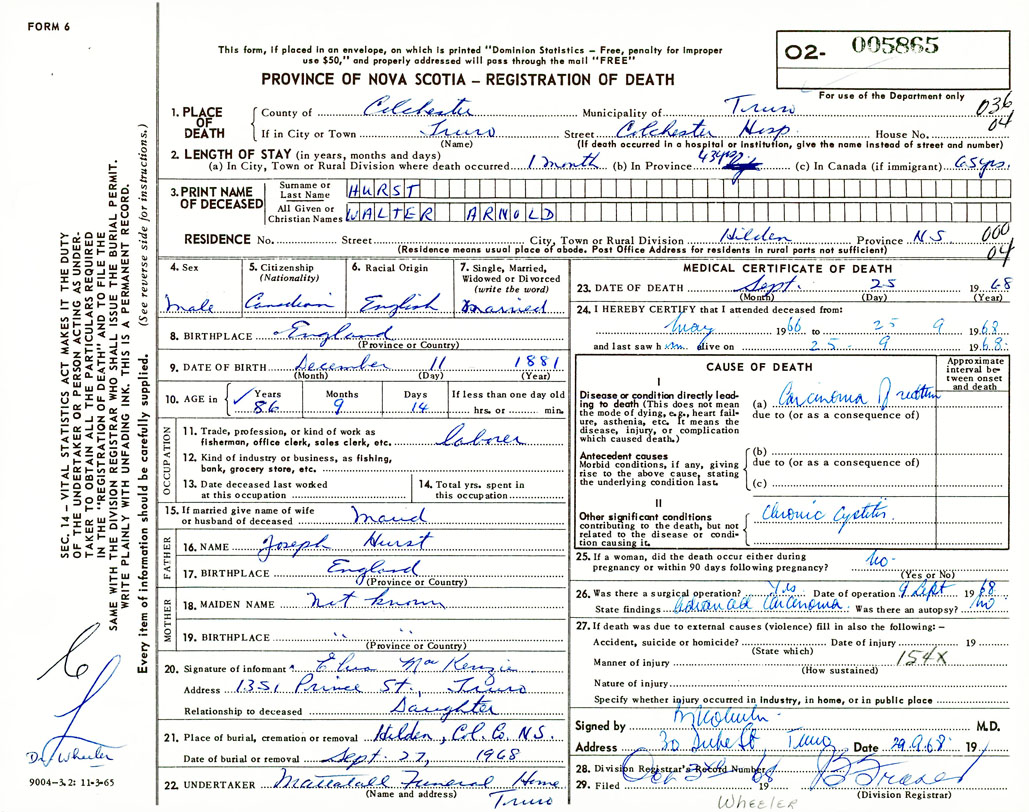 FORM 6
This form, if placed in an envelope, on which is printed "Dominion Statistics – Free, penalty for improper
use $50," and properly addressed will pass through the mail "FREE"
PROVINCE OF NOVA SCOTIA – REGISTRATION OF DEATH
O2- 005865
For use of the Department only
036
04
1. PLACE OF DEATH
County of Colchester Municipality of Truro
If in City or Town Truro Street Colchester Hosp. House No.
(Name) (If death occurred in a hospital or institution, give the name instead of street and number)
2. LENGTH OF STAY (in years, months and days)
(a) In City, Town or Rural Division where death occurred 1 month (b) In Province 43 yrs (c) In Canada (if immigrant) 65 yrs.
3. PRINT NAME OF DECEASED
Surname or Last Name HURST
All Given or Christian Names WALTER ARNOLD
RESIDENCE No. Street City, Town or Rural Division Hilden Province N.S.
(Residence means usual place of abode. Post Office Address for residents in rural parts not sufficient)
000
04
4. Sex
Male
5. Citizenship
(Nationality)
Canadian
6. Racial Origin
English
7. Single, Married,
Widowed or Divorced
(write the word)
Married
8. BIRTHPLACE England
(Province or Country)
9. DATE OF BIRTH December 11 1881
(Month) (Day) (Year)
10. AGE in Years Months Days If less than one day old
86 9 14 hrs. or min.
OCCUPATION
11. Trade, profession, or kind of work as
fisherman, office clerk, sales clerk, etc. laborer
12. Kind of industry or business, as fishing,
bank, grocery store, etc.
13. Date deceased last worked
at this occupation
14. Total yrs. spent in
this occupation
15. If married give name of wife
or husband of deceased Maud
FATHER
16. NAME Joseph Hurst
17. BIRTHPLACE England
(Province or Country)
MOTHER
18. MAIDEN NAME Not known
19. BIRTHPLACE " "
(Province or Country)
20. Signature of informant MacKenzie
Address 1351 Prince St., Truro
Relationship to deceased Daughter
21. Place of burial, cremation or removal Hilden, Col. Co. N.S.
Date of burial or removal Sept. 27, 1968
22. UNDERTAKER Mattatall Funeral Home
(Name and address) Truro
MEDICAL CERTIFICATE OF DEATH
23. DATE OF DEATH Sept. 25 1968
(Month) (Day) (Year)
24. I HEREBY CERTIFY that I attended deceased from:
May 1966 to 25 9 1968
and last saw him alive on 25 - 9 1968
CAUSE OF DEATH
Approximate
interval be-
tween onset
and death
I
Disease or condition directly lead-
ing to death (This does not mean
the mode of dying, e.g., heart fail-
ure, asthenia, etc. It means the
disease, injury, or complication
which caused death.)
(a) Carcinoma of rectum
due to (or as a consequence of)
Antecedent causes
Morbid conditions, if any, giving
rise to the above cause, stating
the underlying condition last.
(b)
due to (or as a consequence of)
(c)
II
Other significant conditions
contributing to the death, but not
related to the disease or condi-
tion causing it.
Chronic Cystitis.
25. If a woman, did the death occur either during
pregnancy or within 90 days following pregnancy? no
(Yes or No)
26. Was there a surgical operation? Yes Date of operation 9 Sept 1968
State findings Advanced Carcinoma Was there an autopsy? no
27. If death was due to external causes (violence) fill in also the following: –
Accident, suicide or homicide? Date of injury 19
(State which)
Manner of injury 154X
(How sustained)
Nature of injury
Specify whether injury occurred in industry, in home, or in public place
Signed by M.D.
Address 30 Duke St, Truro Date 29.9.68. 19
28. Division Registrar's Record Number
29. Filed Oct 3rd 1968 Fraser
(Division Registrar)
WHEELER
SEC. 14 – VITAL STATISTICS ACT MAKES IT THE DUTY
OF THE UNDERTAKER OR PERSON ACTING AS UNDER-
TAKER TO OBTAIN ALL THE PARTICULARS REQUIRED
IN THE "REGISTRATION OF DEATH" AND TO FILE THE
SAME WITH THE DIVISION REGISTRAR WHO SHALL ISSUE THE BURIAL PERMIT.
WRITE PLAINLY WITH UNFADING INK. THIS IS A PERMANENT RECORD.
Every item of information should be carefully supplied. (See reverse side for instructions.)
Dr. Wheeler
9004-3.2: 11-3-65